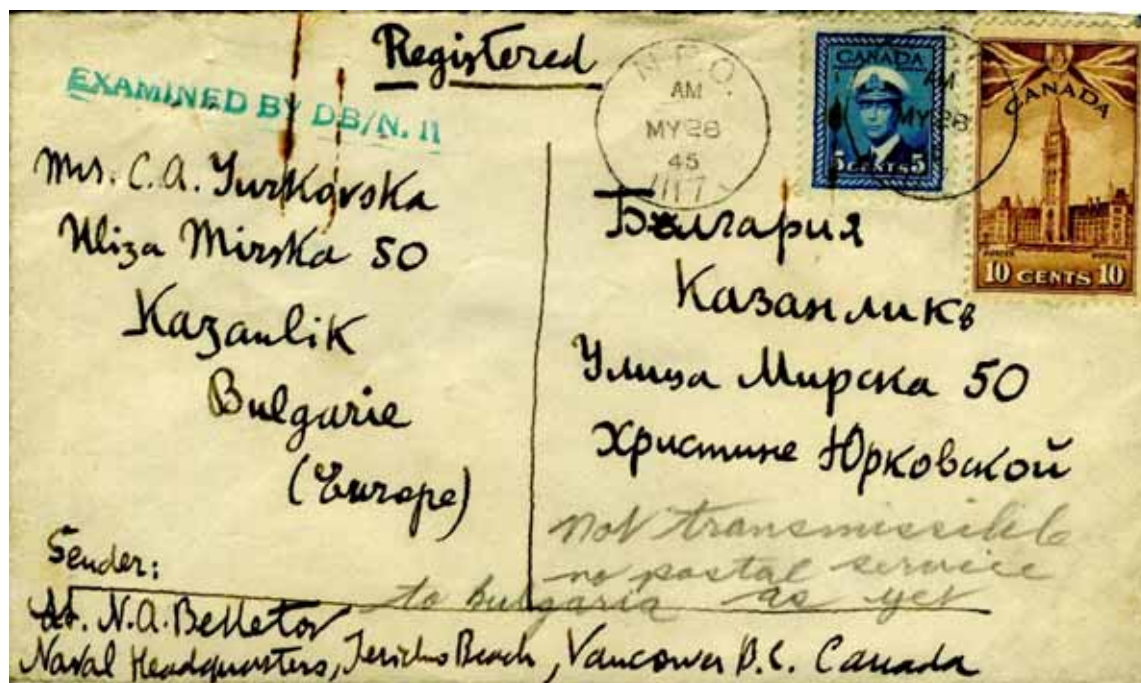 Registered
EXAMINED BY DB/N. 11
N.P.O.
AM
MY 28
45
1117
CANADA
5 CENTS 5
AM
MY 28
CANADA
10 CENTS 10
Mrs. C.A. Yurkovska
Uliza Mirska 50
Kazanlik
Bulgarie
(Europe)
България
Казанликъ
Улица Мирска 50
Христине Юрковской
not transmissible
no postal service
to bulgaria as yet
Sender:
N.A. Belletov
Naval Headquarters, Jericho Beach, Vancouver B.C. Canada